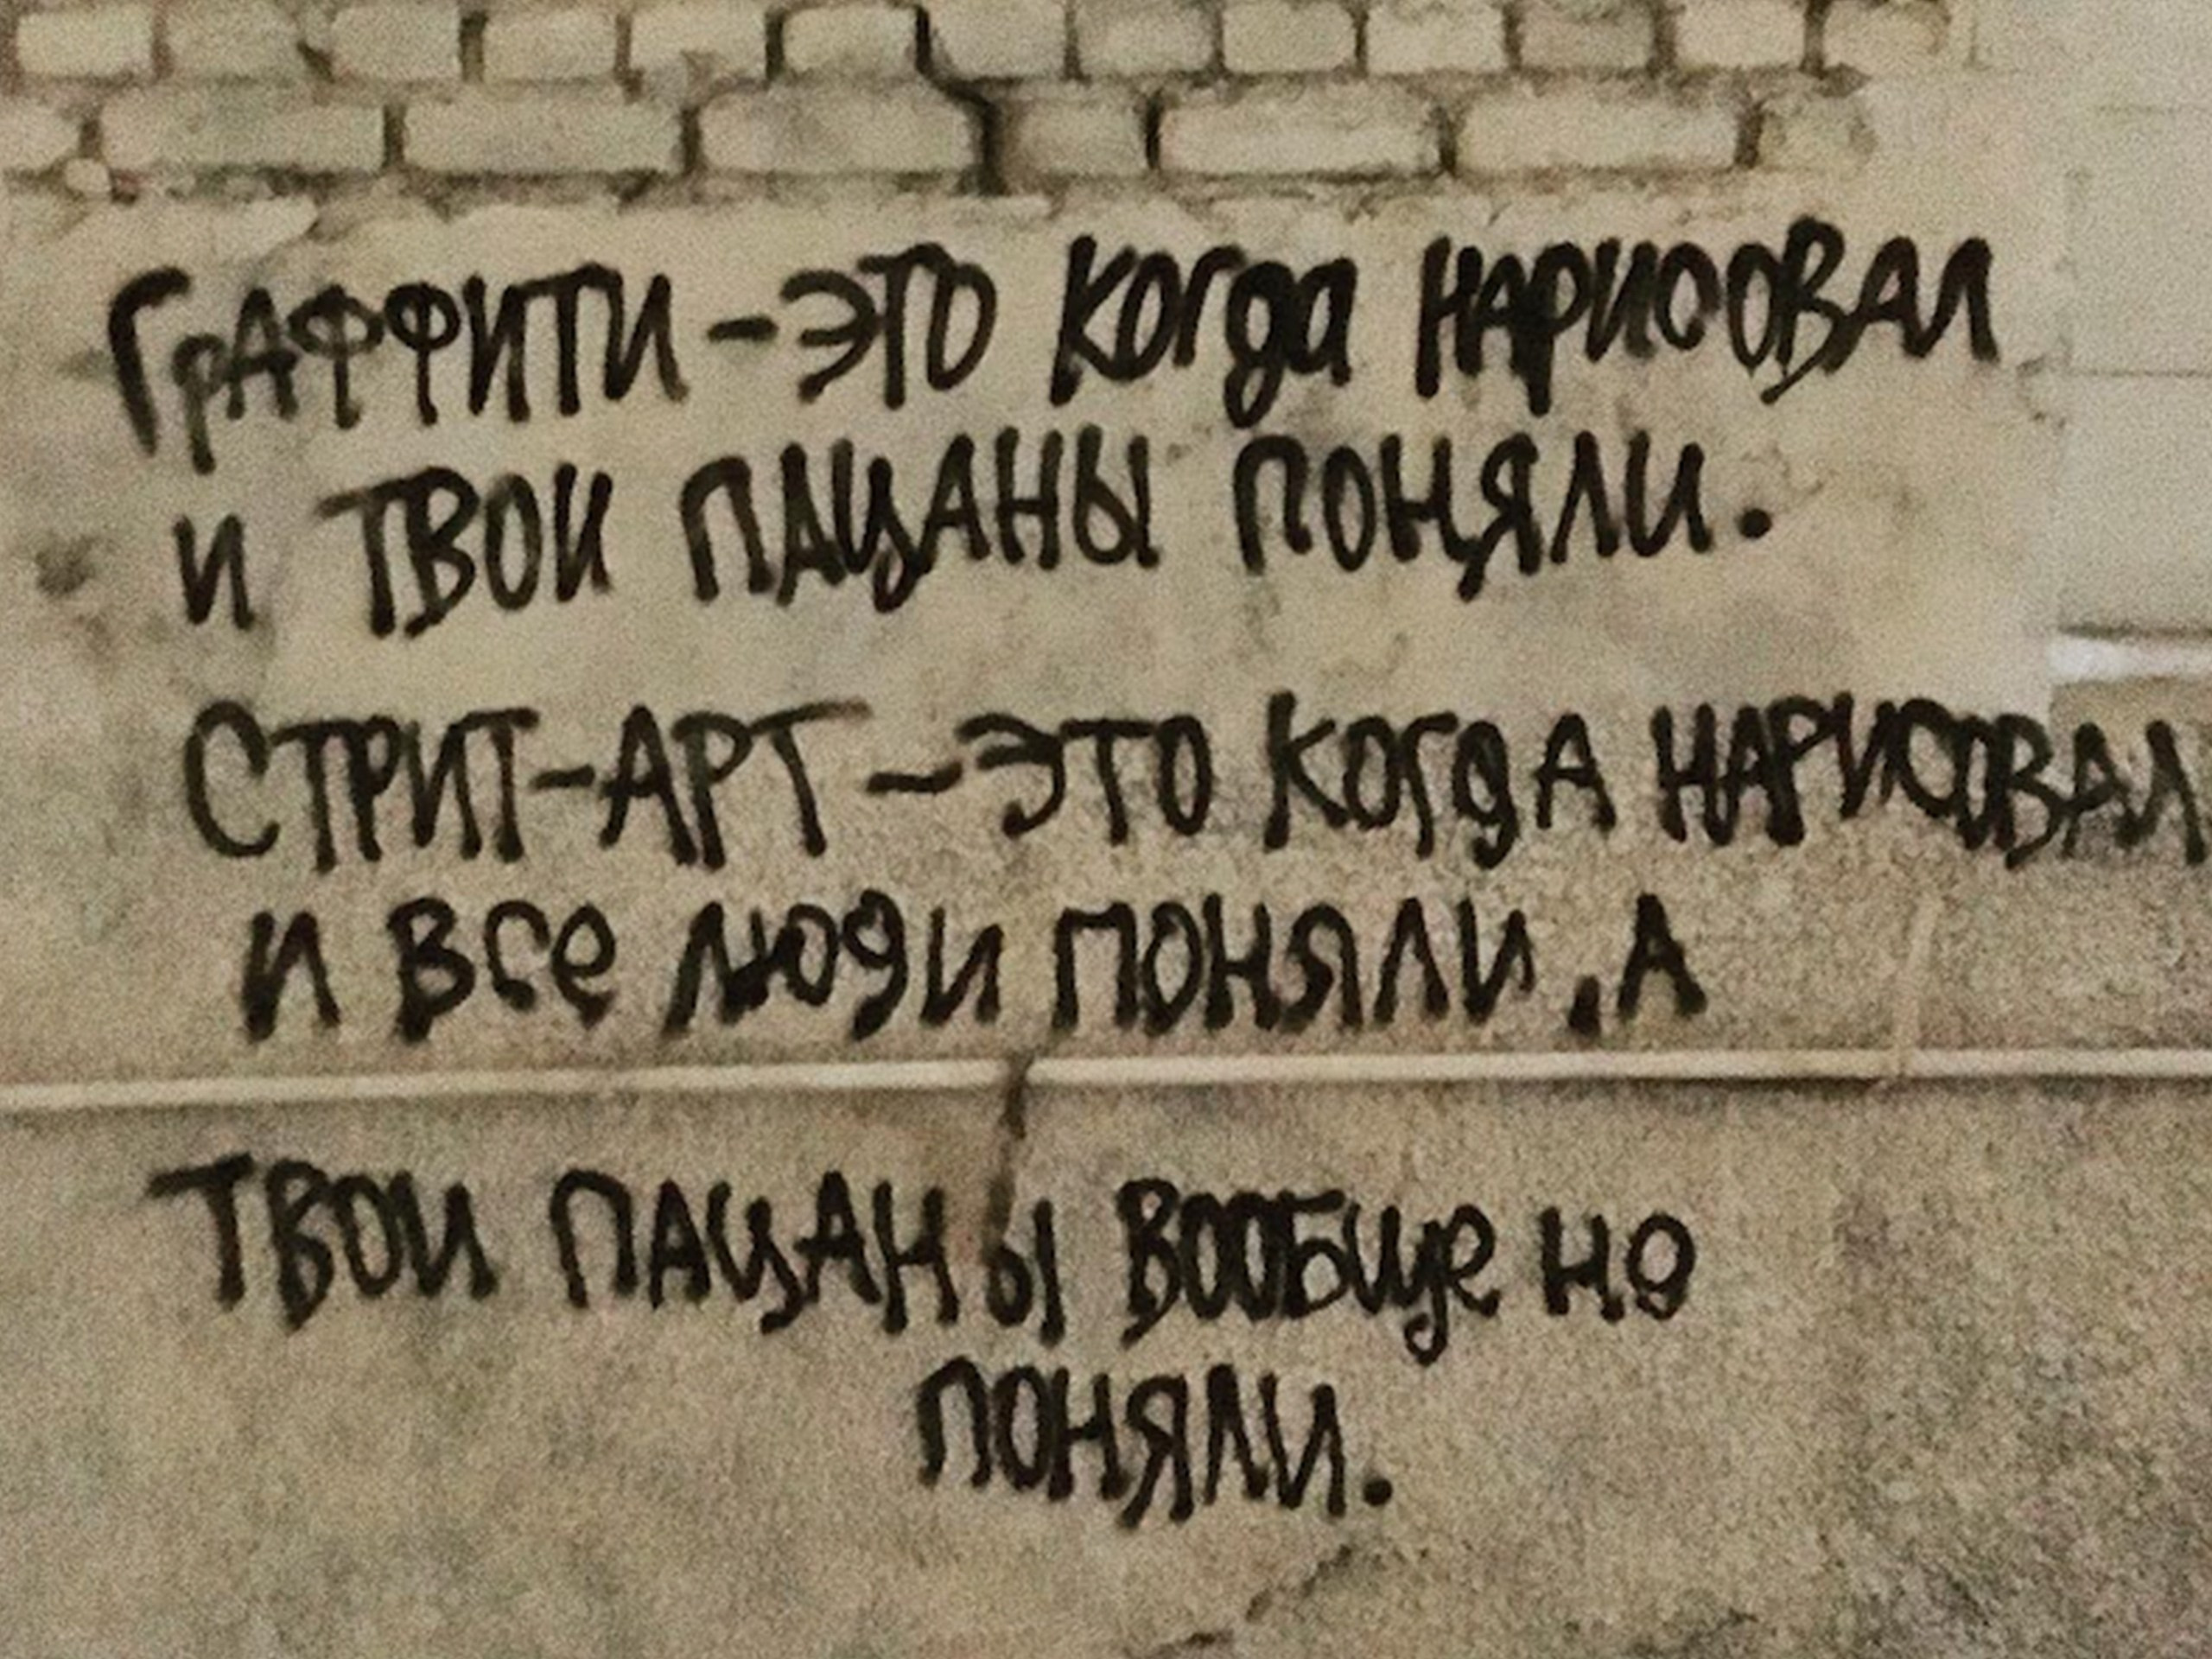 Граффити - это когда нарисовал
и твои пацаны поняли.
Стрит-арт - это когда нарисовал
и все люди поняли, а
твои пацаны вообще не
поняли.